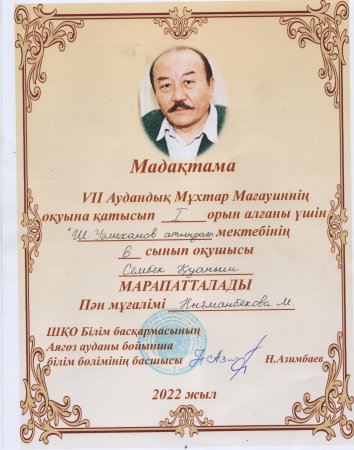 Мадақтама
VII Аудандық Мұхтар Мағауиннің
оқуына қатысып I орын алғаны үшін
"Ш. Уәлиханов атындағы мектебінің
6 сынып оқушысы
Сембек Қуаныш
МАРАПАТТАЛАДЫ
Пән мұғалімі Нығманбекова М.
ШҚО Білім басқармасының
Аягөз ауданы бойынша
білім бөлімінің басшысы Н.Азимбаев
2022 жыл